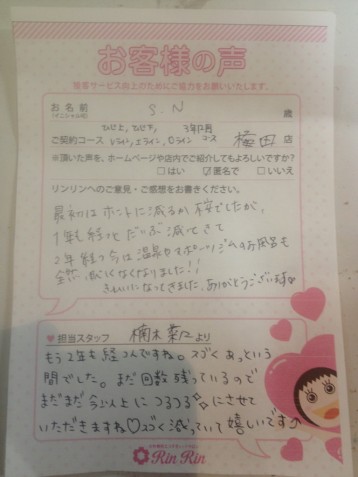 お客様の声
接客サービス向上のためにご協力をお願いいたします。
お名前
(イニシャル可)
S.N
歳
ひじ上、ひじ下、 3年中月
ご契約コース Vライン、Iライン、Oライン コース 梅田 店
※頂いた声を、ホームページや店内でご紹介してもよろしいですか?
はい 匿名で いいえ
リンリンへのご意見・ご感想をお書きください。
最初はホントに減るか でしたが、
1年も経つとだいぶ減ってきて
2年経つ今は温泉やスポーツジムのお風呂も
全然 なくなりました!!
きれいになってきました。ありがとうございます
担当スタッフ 楠木 より
もう2年も経つんですね。スゴくあっという
間でした。まだ回数残っているので
まだまだ今以上につるつるにさせて
いただきますね♡スゴく減っていて嬉しいです♪
Rin Rin